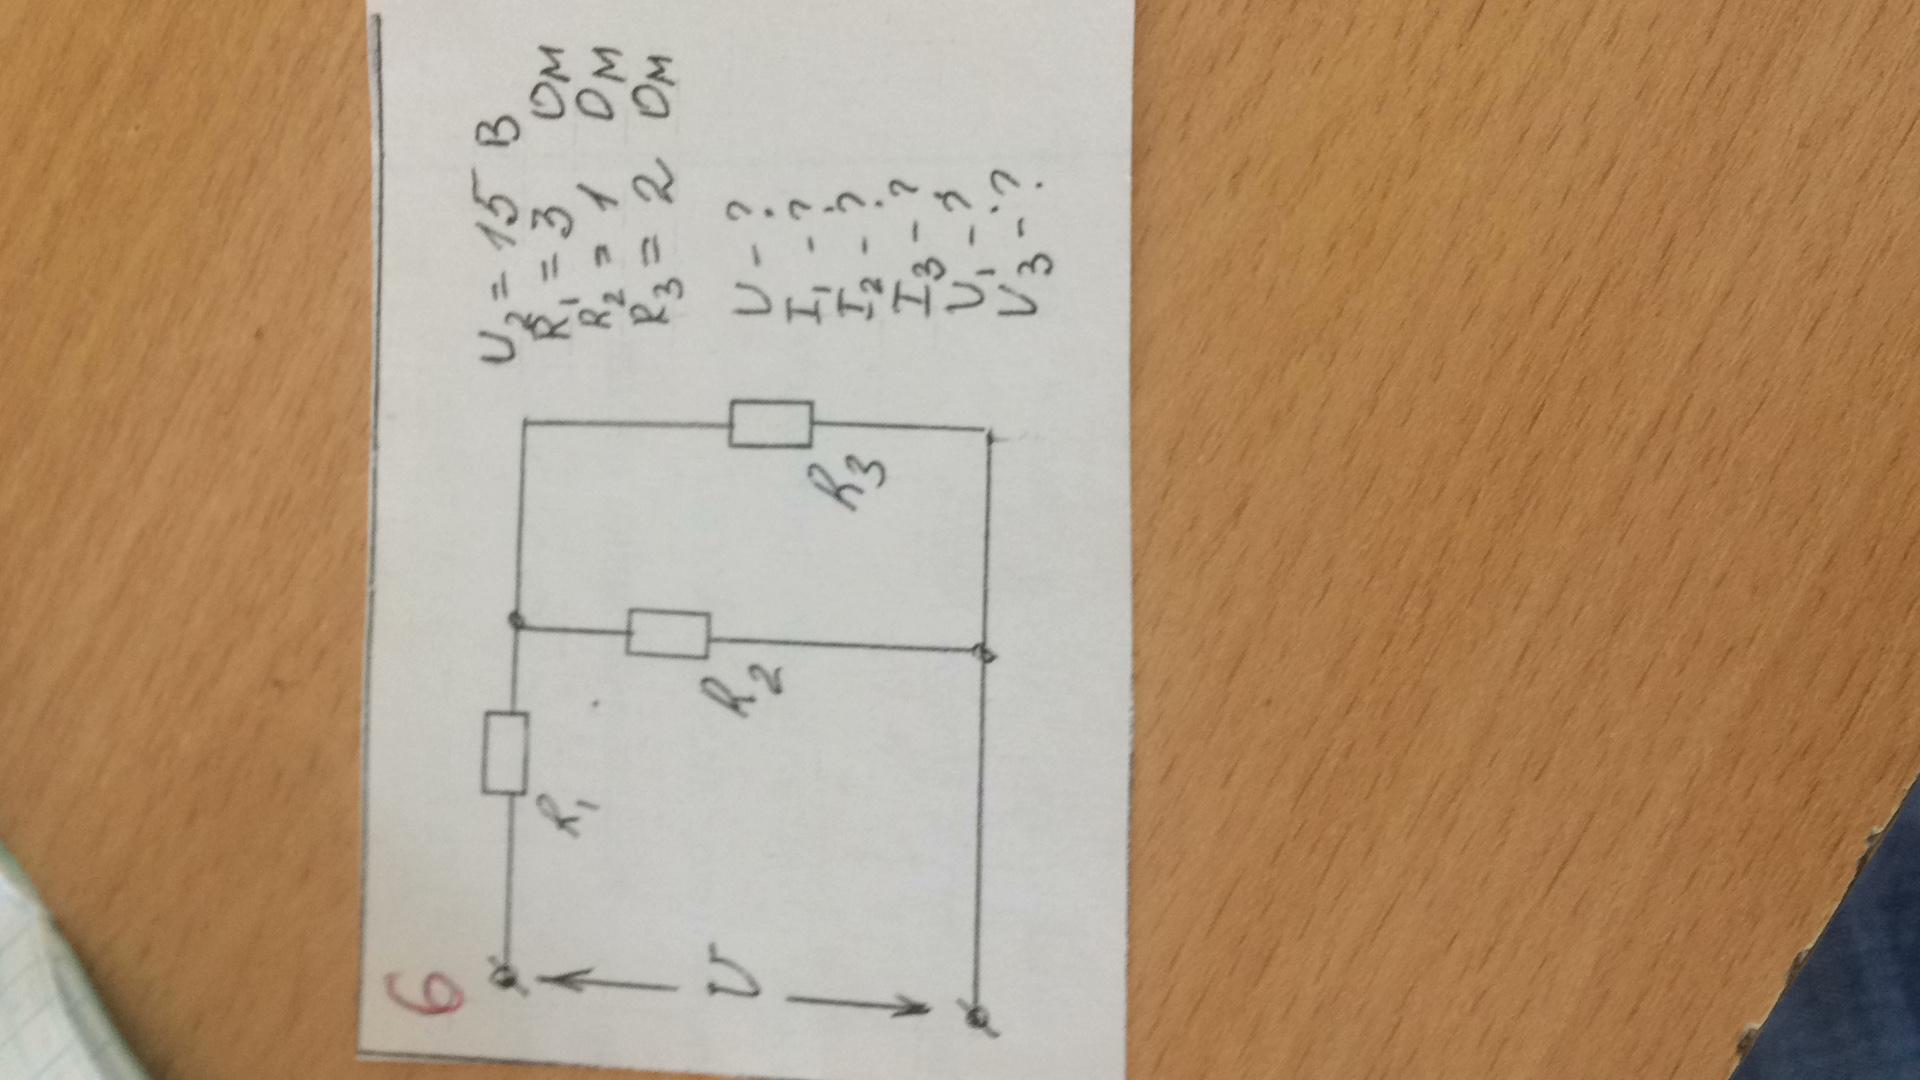 6
U₂ = 15 В
R₁ = 3 Ом
R₂ = 1 Ом
R₃ = 2 Ом
U - ?
I₁ - ?
I₂ - ?
I₃ - ?
U₁ - ?
U₃ - ?
R₁
R₂
R₃
U